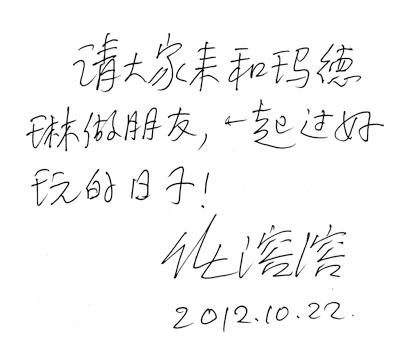 请大家来和玛德
琳做朋友，一起过好
玩的日子！
任溶溶
2012.10.22.